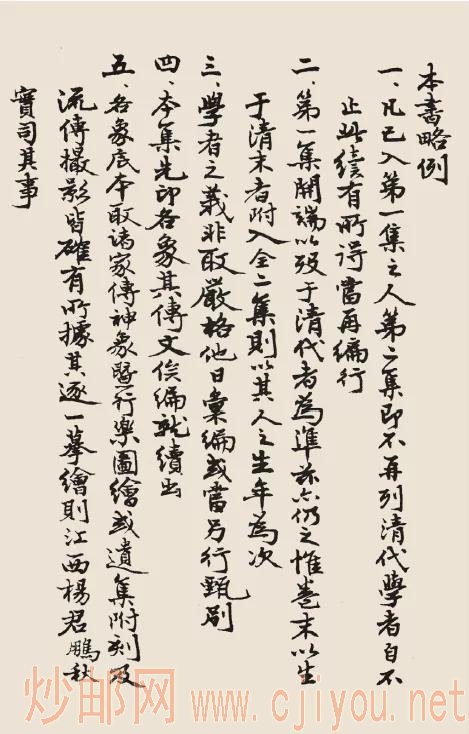 本書略例
一、凡已入第一集之人第二集即不再列清代學者自不
止此續有所得當再編行
二、第一集開端以歿于清代者為準茲亦仍之惟卷末以生
于清末者附入全二集則以其人之生年為次
三、學者之義非取嚴格他日彙編或當另行甄別
四、本集先印各象其傳文俟編就續出
五、各象底本取諸家傳神象暨行樂圖繪或遺集附刻及
流傳攝影皆確有所據其逐一摹繪則江西楊君鵬秋
實司其事
炒邮网 www.cjiyou.net